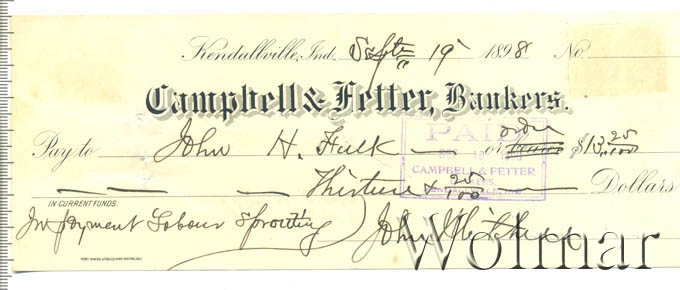 Kendallville, Ind. Septr 19 1898 No.
Campbell & Fetter, Bankers.
Pay to John H. Fulk or order bearer $13.25/100
PAID
SEP 19
CAMPBELL & FETTER
BANKERS,
Thirteen & 25/100 Dollars
IN CURRENT FUNDS.
In payment Labour Sprouting John
Wolmar